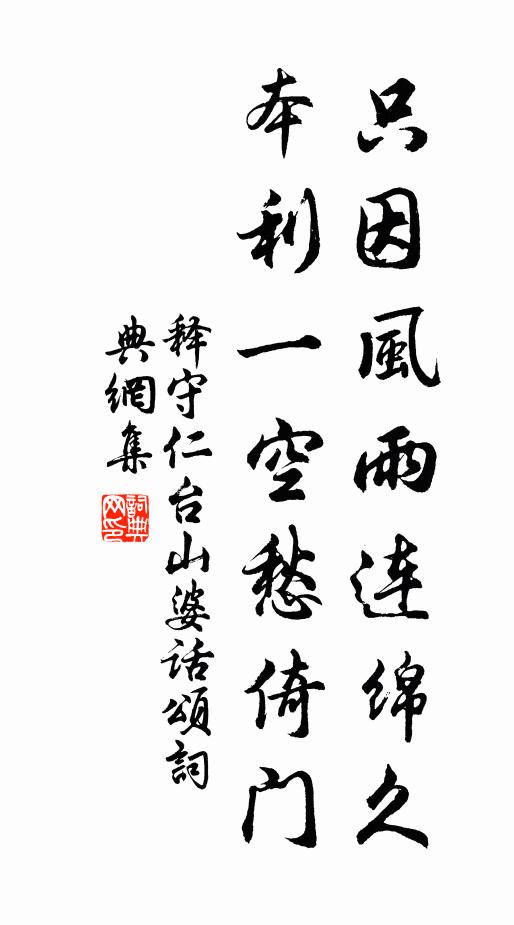 只因風雨连绵久
本利一空愁倚门
释守仁台山婆话頌詞
典網集
詞典网印